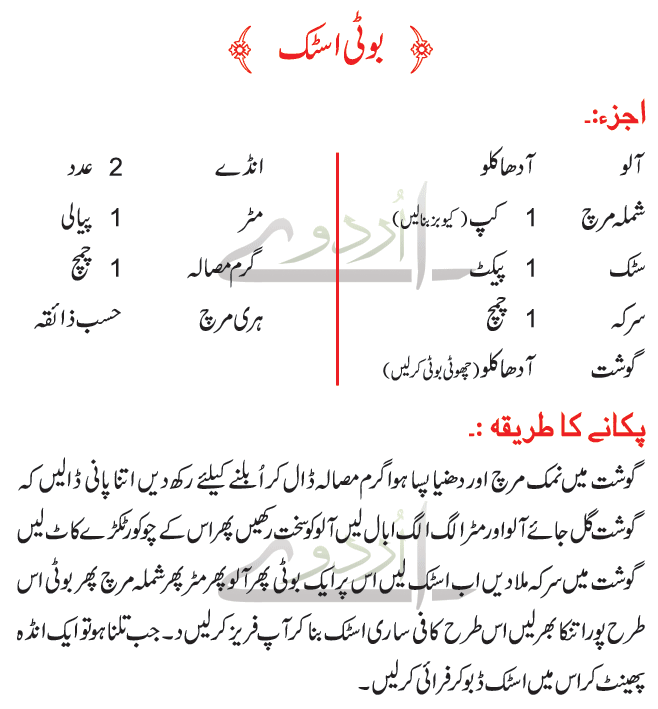 بوٹی اسٹک
اجزء:۔
آلو آدھا کلو
شملہ مرچ 1 کپ (کیوبز بنا لیں)
سٹک 1 پیکٹ
سرکہ 1 چمچ
گوشت آدھا کلو (چھوٹی بوٹی کر لیں)
انڈے 2 عدد
مٹر 1 پیالی
گرم مصالہ 1 چمچ
ہری مرچ حسب ذائقہ
پکانے کا طریقہ :۔
گوشت میں نمک مرچ اور دھنیا پسا ہوا گرم مصالہ ڈال کر اُبلنے کیلئے رکھ دیں اتنا پانی ڈالیں کہ
گوشت گل جائے آلو اور مٹر الگ الگ ابال لیں آلو کو سخت رکھیں پھر اس کے چوکور ٹکڑے کاٹ لیں
گوشت میں سرکہ ملا دیں اب اسٹک لیں اس پر ایک بوٹی پھر آلو پھر مٹر پھر شملہ مرچ پھر بوٹی اس
طرح پورا تنکا بھر لیں اس طرح کافی ساری اسٹک بنا کر آپ فریز کر لیں د۔ جب تلنا ہو تو ایک انڈہ
پھینٹ کر اس میں اسٹک ڈبو کر فرائی کر لیں۔
اُردو